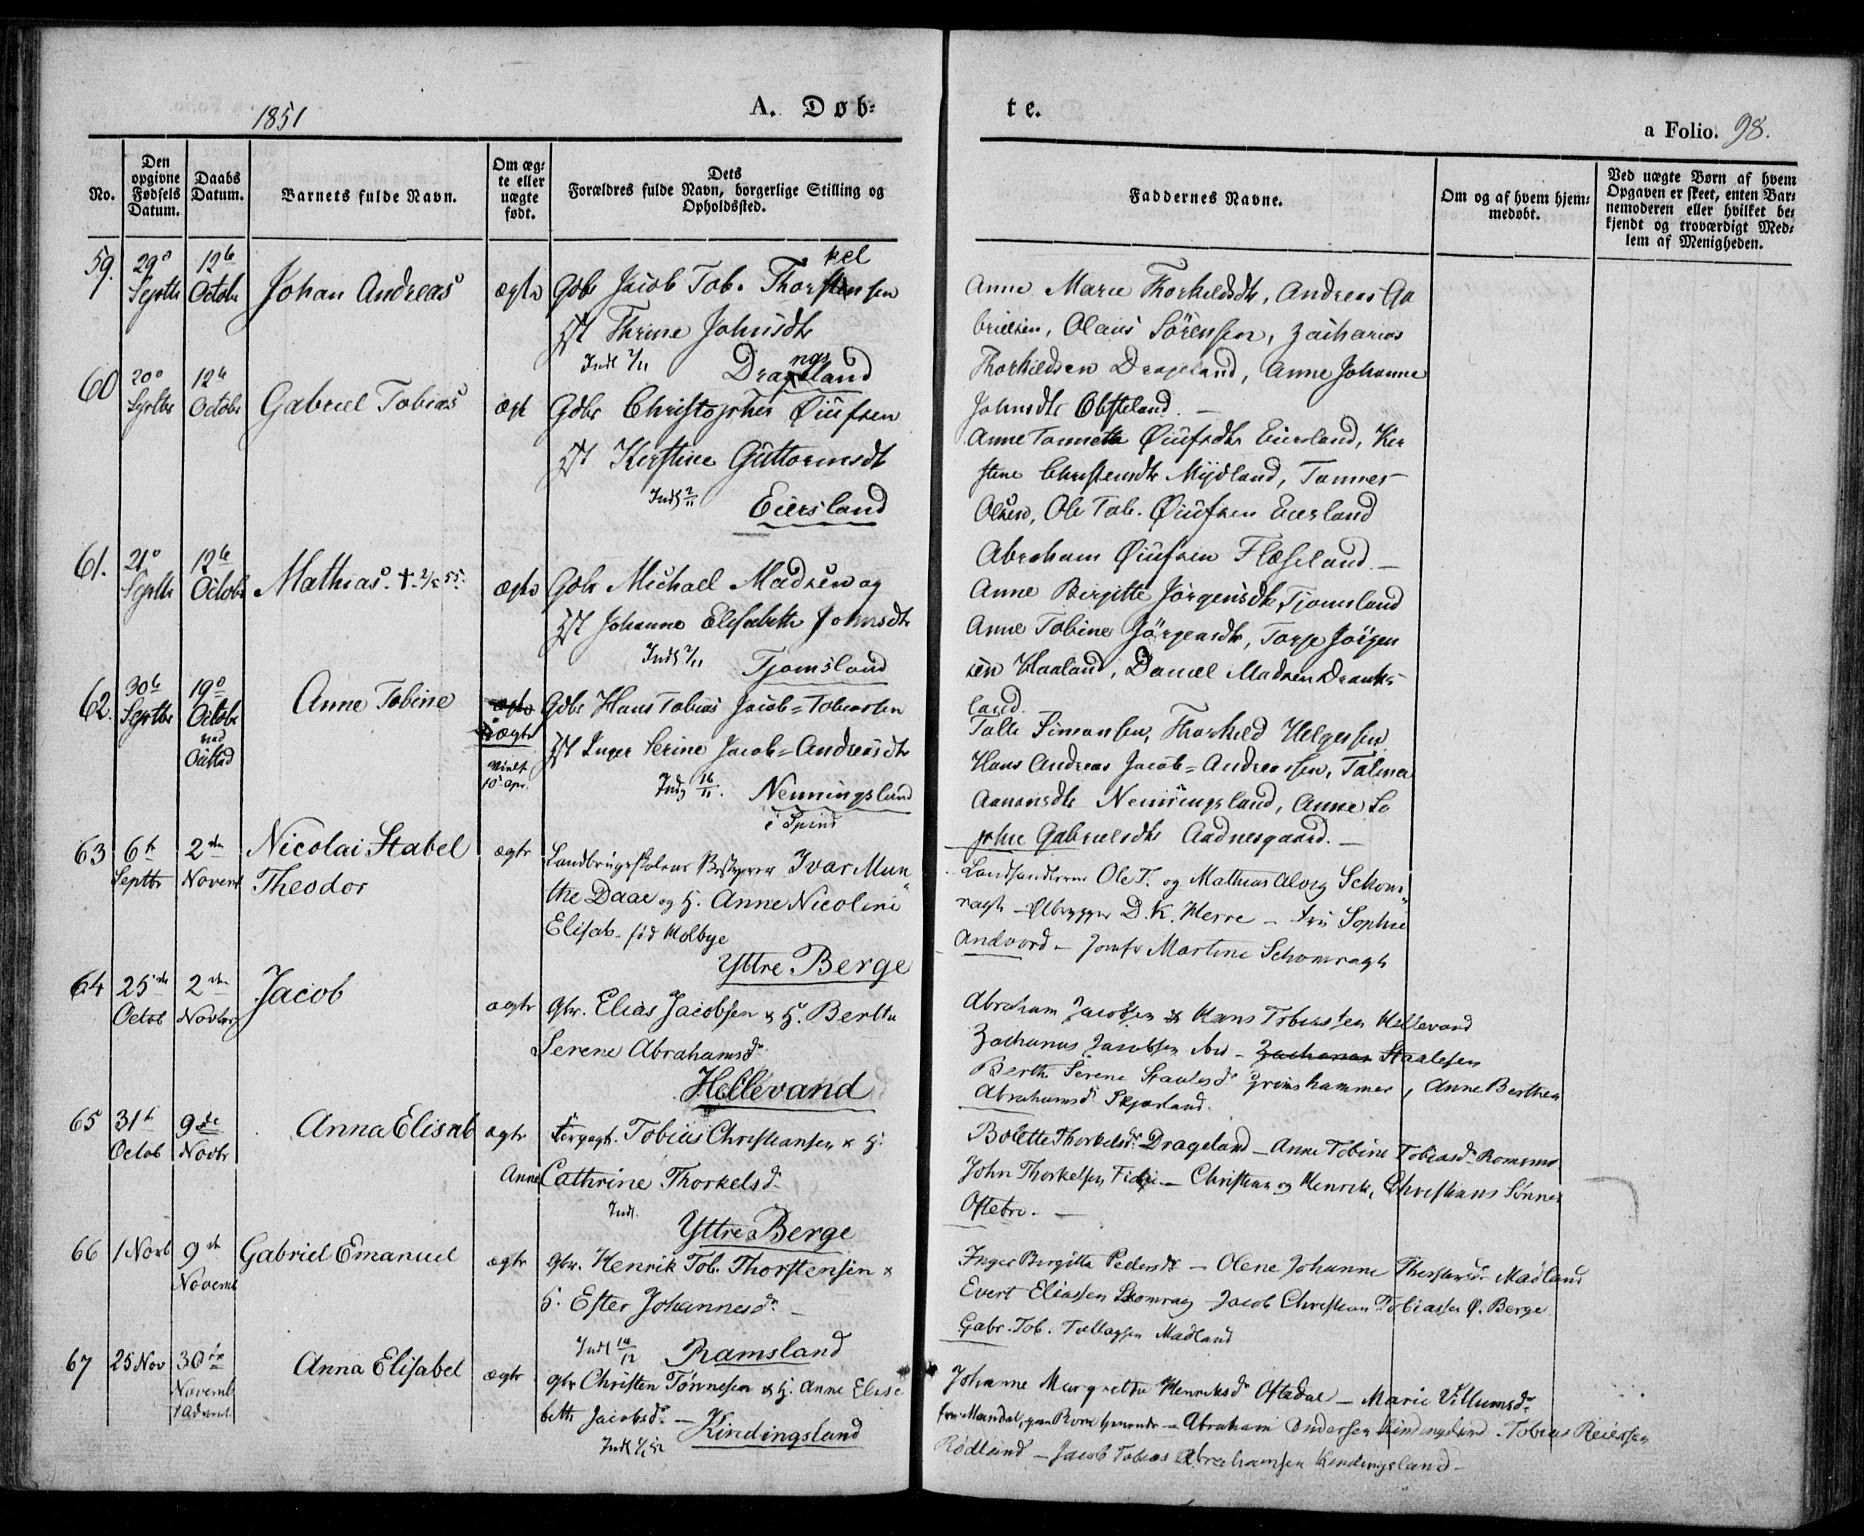 1851
A. Døb-
te.
a Folio. 98.
No.
Den opgivne Fødsels Datum.
Daabs Datum.
Barnets fulde Navn.
Om ægte eller uægte født.
Dets Forældres fulde Navn, borgerlige Stilling og Opholdssted.
Faddernes Navne.
Om og af hvem hjemmedøbt.
Ved uægte Børn af hvem Opgaven er skeet, enten Barnemoderen eller hvilket bekjendt og troværdigt Medlem af Menigheden.
59. 29 Septbr 12te Octobr Johan Andreas ægte Gdbr Jacob Tob. Thorkelsen
Thrine Johnsdtr
Indl 2/11 Drangsland
Anne Marie Thorkildsdtr, Andreas Ga
brielsen, Olaus Sørensen, Zacharias
Thorkildsen Drageland, Anne Johanne
Johnsdtr Obsteland.
60 20 Septbr 12te Octobr Gabriel Tobias ægte Gdbr Christopher Øiufsen
Kerstine Guttormsdt
Indl 2/11 Eiersland
Anne Tonnette Øiufsdtr Eiersland, Ker
stine Christensdtr Mydland, Tønnes
Olsen, Ole Tob. Øiufsen Eiersland
Abraham Øiufsen Fleseland.
61. 21 Septbr 12te Octobr Mathias. ægte Gdbr Michael Madsen og
Johanne Elisabeth Johnsdtr
Indl 2/11 Tjomsland
Anne Birgitte Jørgensdtr Tjomsland
Anne Tobine Jørgensdtr, Torje Jørgen
sen Haaland, Daniel Madsen Drank
land.
62. 30te Septbr 19 Octobr ved Oustad Anne Tobine ægte uægte
Gdbr Hans Tobias Jacob-Tobiassen
Inger Serine Jacob-Andreasdtr
Indl 16/11. Nenningsland
i Spind
Tolle Simonsen, Thorkild Helgesen
Hans Andreas Jacob-Andreassen, Talina
Aanonsdtr Nenningsland, Anne So
phie Gabrielsdtr Aadnesgaard.
63 6te Septbr 2den Novemb Nicolai Stabel
Theodor ægte Landbrugsskolens Bestyrer Ivar Mun
the Daae og H. Anne Nicoline
Elisab. fød Holbye
Yttre Berge
Landhandlerne Ole T. og Mathias Alvig Schom
ragh - Ølbrygger D.K. Herre - Fru Sophie
Andvord - Jomfr Martine Schomragh
64 25de Octob 2den Novbr Jacob ægte gbr. Elias Jacobsen & H. Berthe
Serene Abrahamsdr
Hellevand
Abraham Jacobsen & Hans Tobiassen Hellevand
Zacharias Jacobsen ibid - Zacharias Staalesen
Berthe Serene Staalesdr Grimshammer, Anne Berthea
Abrahamsdr Skjørland.
65 31te Octob 9de Novbr Anna Elisab ægte Forpagt. Tobias Christiansen & H.
Anne Cathrine Thorkelsdr
Indl. Yttre Berge
Bolette Thorkelsdr Drageland - Anne Tobine Tobiasdr
John Thorkelsen Fidje - Christian og Henrik, Christians Sønner
Oftebro. -
66 1 Novb 9de Novemb Gabriel Emanuel ægte gbr. Henrik Tob. Thorstensen &
H. Ester Johannesdr -
Indl Ramsland
Inger Birgitta Pedersdr - Olene Johanne Thorstensdr Madland
Evert Eliassen Skomrag - Jacob Christian Tobiassen Ø. Berge
Gabr. Tob. Tollagsen Madland
67 25 Nov 30te Novemb 1 Advent Anna Elisabet ægte gbr Christen Tønnesen & H. Anne Elisa
beth Jacobsdr - Kindingsland
Indl
Johanne Margrethe Henriksdr Oftedal - Marie Villumsdr
fra Mandal - Abraham Andersen Kindingsland - Tobias Reiersen
Rødland - Jacob Tobias Abrahamsen Kindingsland -